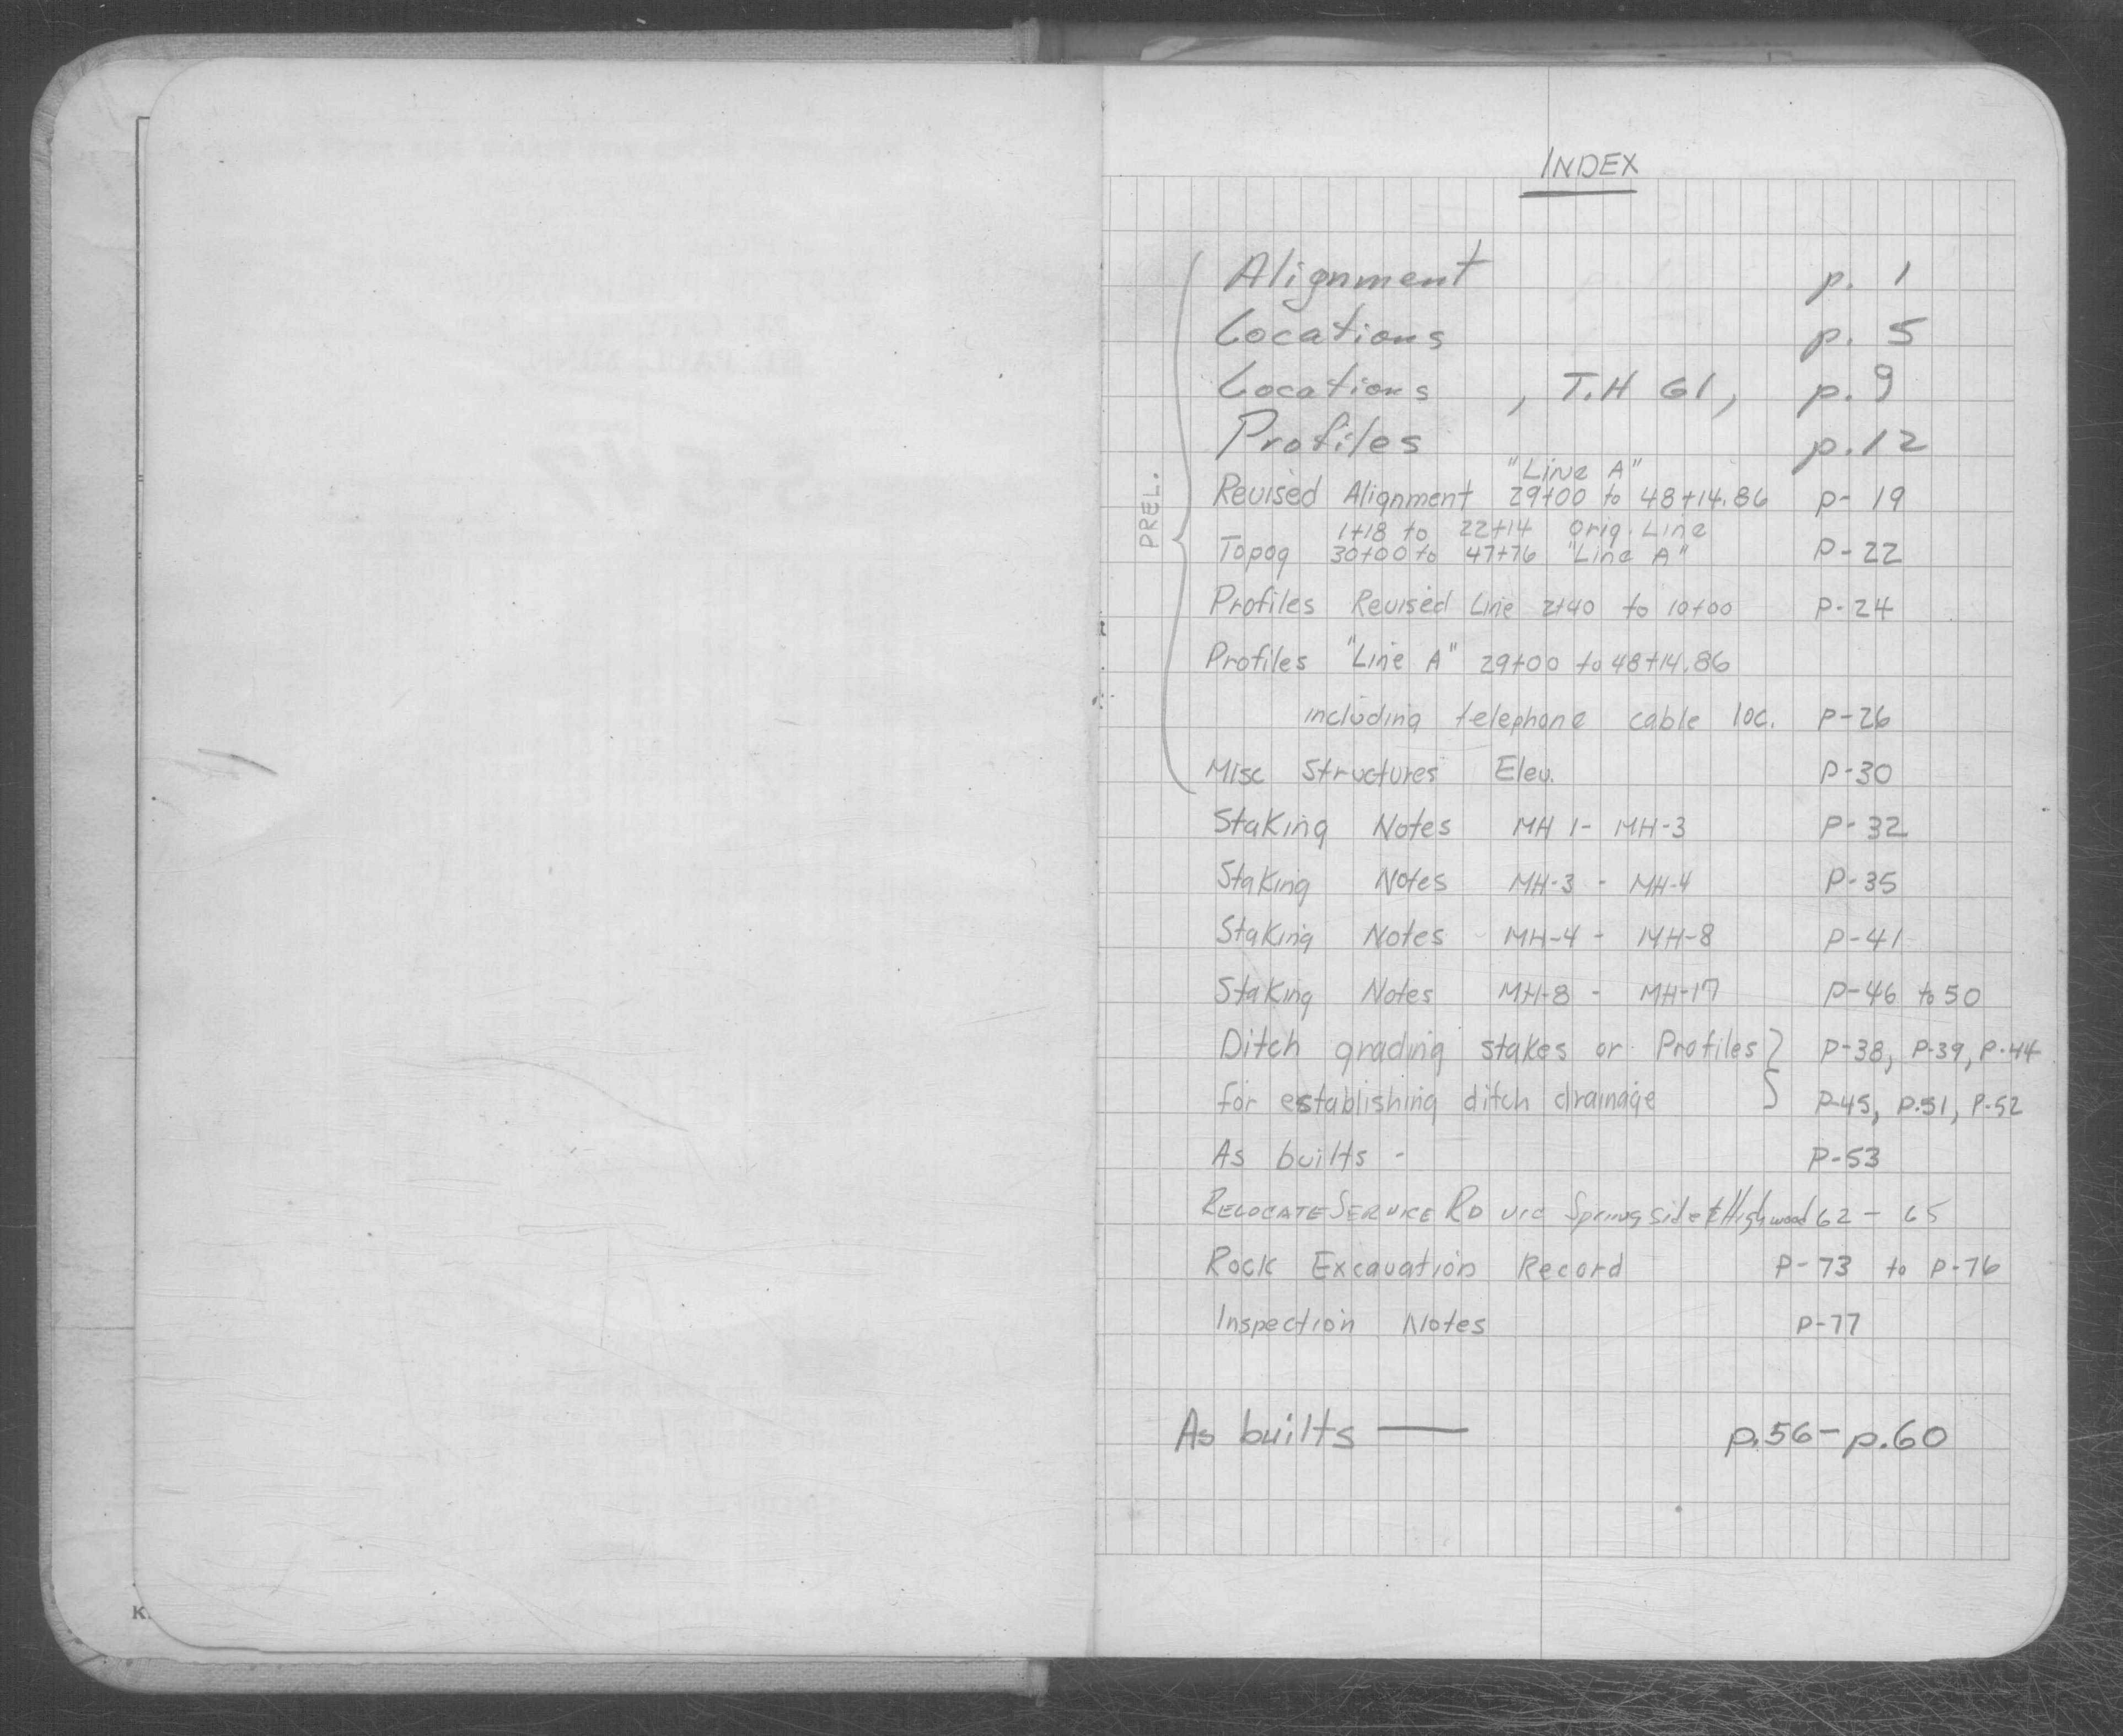 INDEX
Alignment p. 1
Locations p. 5
Locations , T.H 61, p. 9
Profiles p. 12
"Line A"
Revised Alignment 29+00 to 48+14.86 p- 19
1+18 to 22+14 Orig. Line
Topog 30+00 to 47+76 "Line A" P-22
Profiles Revised Line 2+40 to 10+00 P-24
Profiles "Line A" 29+00 to 48+14.86
including telephone cable loc. P-26
Misc Structures Elev. P-30
PREL.
Staking Notes MH 1- MH-3 P-32
Staking Notes MH-3 - MH-4 P-35
Staking Notes MH-4 - MH-8 P-41
Staking Notes MH-8 - MH-17 P-46 to 50
Ditch grading stakes or Profiles } P-38, P-39, P-44
for establishing ditch drainage P-45, P.51, P-52
As builts - P-53
RELOCATE SERVICE RD Vic Springside & Highwood 62 - 65
Rock Excavation Record P-73 to P-76
Inspection Notes P-77
As builts — p.56-p.60
K